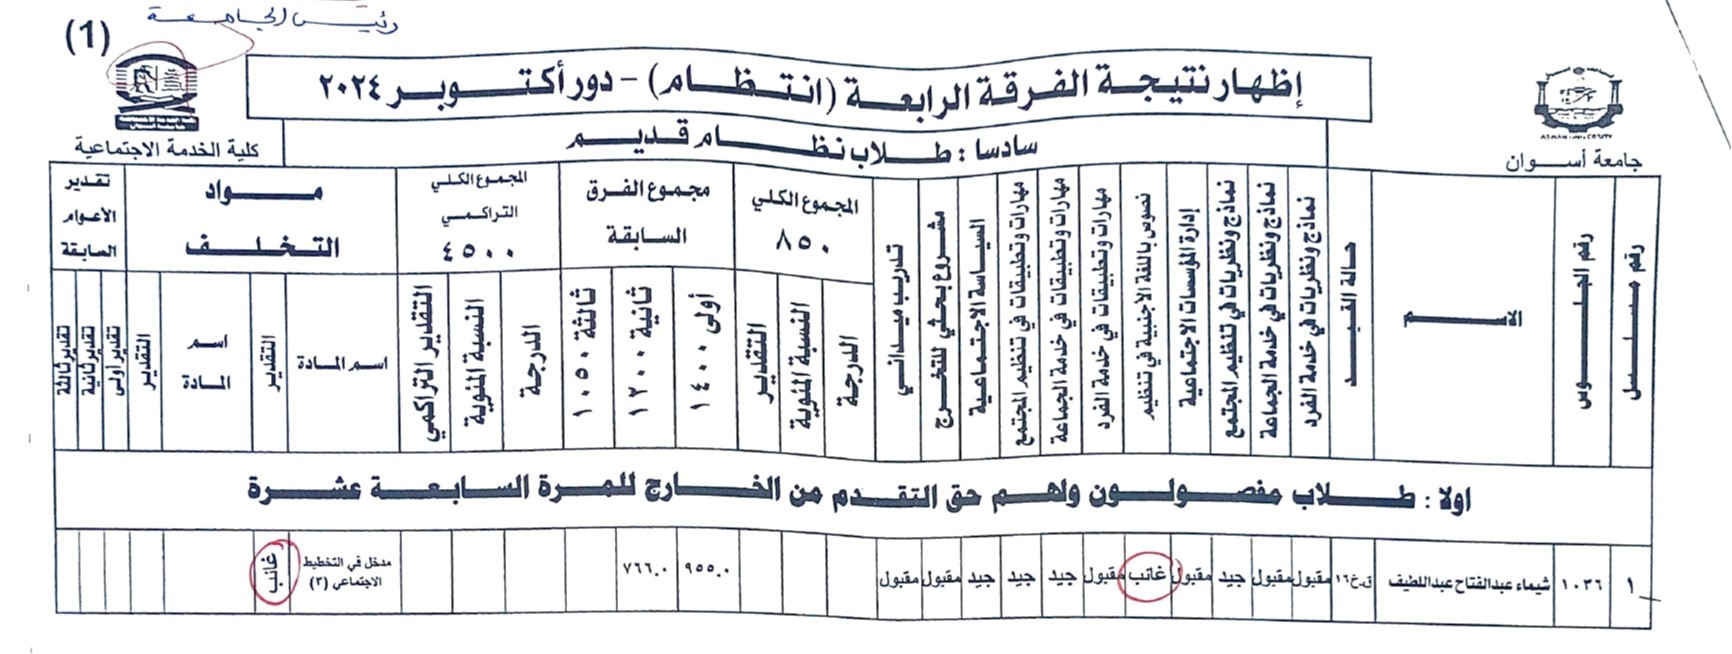 رئيس الجامعة
(1)
إظهار نتيجة الفرقة الرابعة (انتظام) - دور أكتوبر ٢٠٢٤
سادسا : طلاب نظام قديم
ASWAN UNIVERSITY
جامعة أسوان
كلية الخدمة الاجتماعية
رقم مسلسل
رقم الجلوس
الاسم
حالة القيد
نماذج ونظريات في خدمة الفرد
نماذج ونظريات في خدمة الجماعة
نماذج ونظريات في تنظيم المجتمع
إدارة المؤسسات الاجتماعية
نصوص باللغة الاجنبية في تنظيم
مهارات وتطبيقات في خدمة الفرد
مهارات وتطبيقات في خدمة الجماعة
مهارات وتطبيقات في تنظيم المجتمع
السياسة الاجتماعية
مشروع بحثي للتخرج
تدريب ميداني
المجموع الكلي
٨٥٠
الدرجة
النسبة المئوية
التقدير
مجموع الفرق
السابقة
أولى ١٤٠٠
ثانية ١٢٠٠
ثالثة ١٠٥٠
المجموع الكلي
التراكمي
٤٥٠٠
الدرجة
النسبة المئوية
التقدير التراكمي
مواد
التخلف
اسم المادة
التقدير
اسم
المادة
التقدير
تقدير
الاعوام
السابقة
تقدير أولى
تقدير ثانية
تقدير ثالثة
اولا : طلاب مفصولون ولهم حق التقدم من الخارج للمرة السابعة عشرة
١ ١٠٣٦ شيماء عبدالفتاح عبداللطيف ق.خ١٦ مقبول مقبول جيد مقبول غائب مقبول جيد جيد جيد مقبول مقبول ٩٥٥.٠ ٧٦٦.٠ مدخل في التخطيط
الاجتماعي (٣) غائب